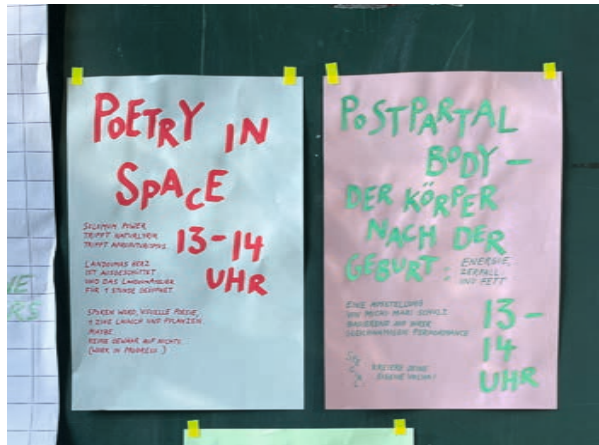 POETRY IN
SPACE
13-14
UHR
SOLOMUN POWER
TRIFFT NATURLYRIK
TRIFFT AFROFUTURISMUS.
LANDOUMAS HERZ
IST AUSGESCHÜTTET
UND DAS LANDOUMATELIER
FÜR 1 STUNDE GEÖFFNET.
SPOKEN WORD, VISUELLE POESIE,
UND PFLANZEN.
MAYBE.
KEINE GEWÄHR AUF NICHTS.
(WORK IN PROGRESS)
POSTPARTAL
BODY –
DER KÖRPER
NACH DER
GEBURT:
ENERGIE,
ZERFALL
UND FETT
EINE AUSSTELLUNG
VON MICHU MARI SCHULZ
BASIEREND AUF IHRER
GLEICHNAMIGEN PERFORMANCE
13-
14
UHR
KREIERE DEINE
EIGENE VULVA!